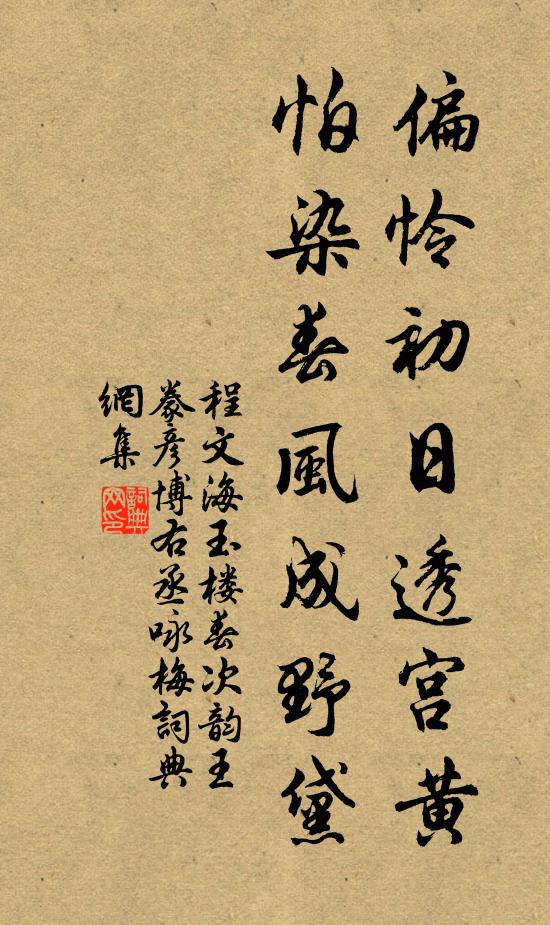 偏怜初日透宫黄
怕染春風成野黛
程文海玉楼春次韵王
豢彦博右丞咏梅詞典
網集
詞典
网印